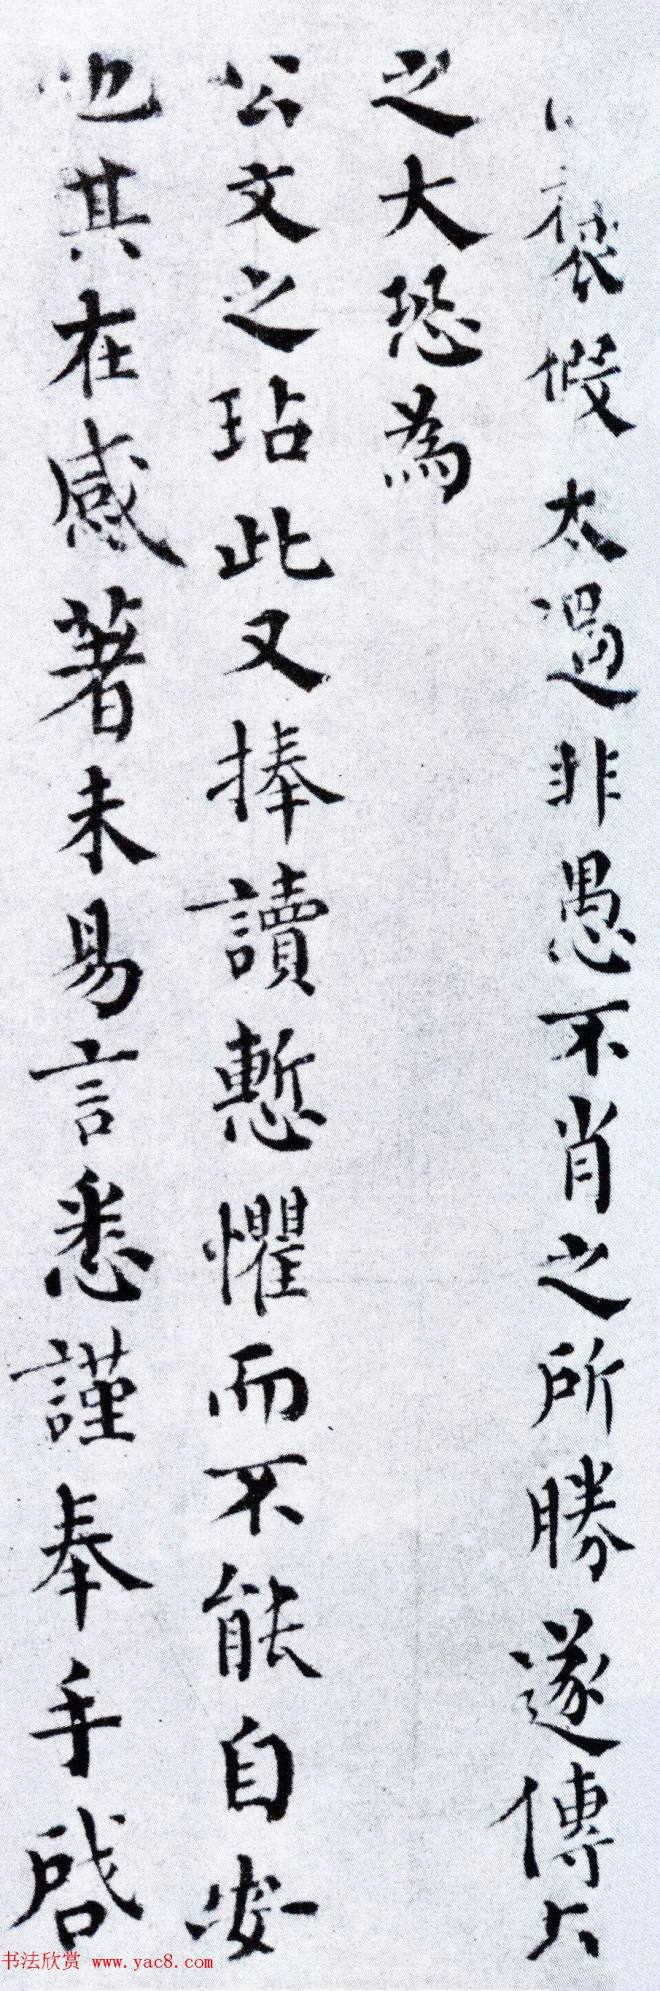 襃假太過非愚不肖之所勝遂傳大
之大恐為
公文之玷此又捧讀慙懼而不能自安
也其在感著未易言悉謹奉手啓
书法欣赏 www.yac8.com